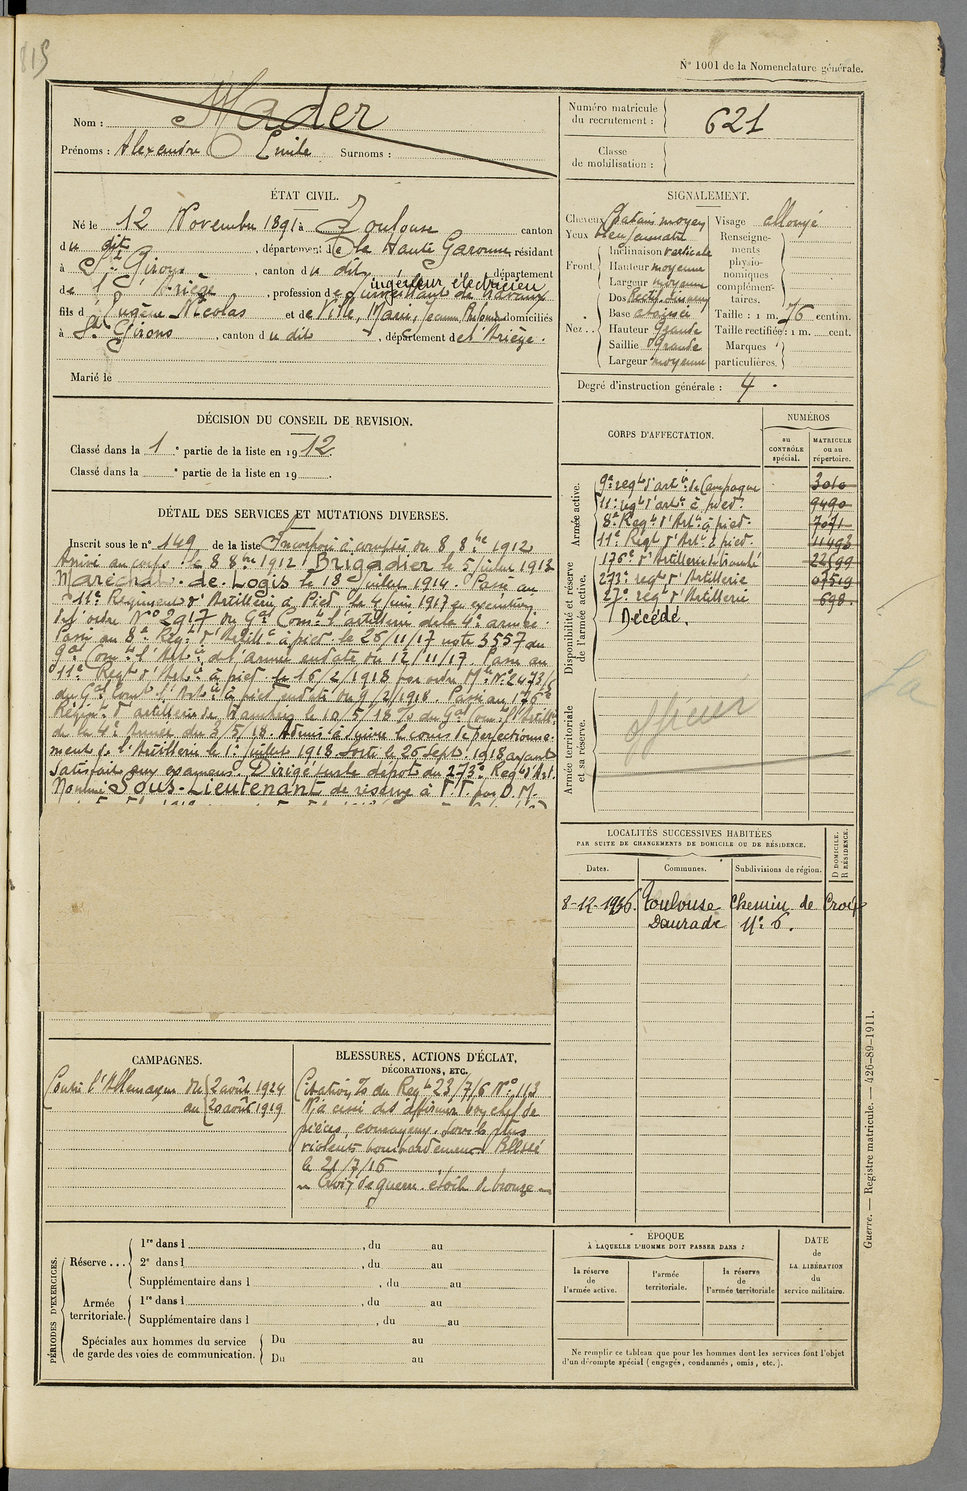 815
N° 1001 de la Nomenclature générale.
Nom : Mader
Prénoms : Alexandre Emile Surnoms :
Numéro matricule du recrutement : 621
Classe de mobilisation :
ÉTAT CIVIL.
Né le 12 Novembre 1891 à Toulouse canton
du dit, département de la Haute Garonne, résidant
à St Girons, canton du dit, département
de l'Ariège, profession de surveillant de travaux
ingénieur électricien
fils d'Eugène Nicolas et de Ville, Marie, Jeanne, domiciliés
à St Girons, canton du dit, département de l'Ariège.
Marié le
SIGNALEMENT.
Cheveux Chatain moyen
Yeux
Front Inclinaison verticale
Hauteur moyenne
Largeur moyenne
Nez Dos
Base
Hauteur Grande
Saillie Grande
Largeur moyenne
Visage allongé
Renseignements physionomiques complémentaires.
Taille : 1 m. 76 centim.
Taille rectifiée : 1 m. cent.
Marques particulières.
Degré d'instruction générale : 4.
DÉCISION DU CONSEIL DE REVISION.
Classé dans la 1e partie de la liste en 1912.
Classé dans la e partie de la liste en 19
DÉTAIL DES SERVICES ET MUTATIONS DIVERSES.
Inscrit sous le n° 149 de la liste Incorporé à compter du 8 8bre 1912
Arrivé au corps le 8 8bre 1912 Brigadier le 5 Juillet 1913
Maréchal de Logis le 18 Juillet 1914. Passé au
11e Régiment d'Artillerie à Pied le 4 Juin 1917 en exécution
de l'ordre N° 2917 du Gal Comt l'artillerie de la 4e armée.
Passé au 8e Régt d'Artillie à pied le 25/11/17 note 3557 du
Gal Comt l'Artie de l'armée en date du 12/11/17. Passé au
11e Régt d'Artie à pied le 16/2/1918 par ordre Mre N° 2473/6
du Gal Comt l'Artie à pied en date du 9/2/1918 Passé au 176e
Régimt d'artillerie de tranchée le 10/5/18 O/ du Gal Comt l'Artillie
de la 4e Armée du 3/5/18. Admis à suivre le cours de perfectionne-
ment de l'Artillerie le 1er Juillet 1918. Sorti le 26 Sept. 1918 ayant
satisfait aux examens. Dirigé sur le dépôt du 273e Régt d'Art.
Nommé Sous-Lieutenant de réserve à T.T. par D.M.
CORPS D'AFFECTATION.
NUMÉROS
au CONTRÔLE spécial.
MATRICULE ou au répertoire.
Armée active.
9e régt d'artie de Campagne 3010
11e régt d'artie à pied. 9490
8e Régt d'Artie à pied. 7071
11e Régt d'Artie à pied. 11493
Disponibilité et réserve de l'armée active.
176e d'Artillerie de tranchée 22599
273e régt d'Artillerie 07519
27e régt d'Artillerie 698.
Décédé.
Armée territoriale et sa réserve.
Officier
LOCALITÉS SUCCESSIVES HABITÉES
PAR SUITE DE CHANGEMENTS DE DOMICILE OU DE RÉSIDENCE.
Dates. Communes. Subdivisions de région. D DOMICILE. R RÉSIDENCE.
8-12-1936. Toulouse Chemin de Croix
Daurade N° 6.
CAMPAGNES.
Contre l'Allemagne du 2 août 1914
au 20 août 1919
BLESSURES, ACTIONS D'ÉCLAT,
DÉCORATIONS, ETC.
Citation O/ du Régt 23/7/16 N° 113
N'a cessé de s'affirmer bon chef de
pièces, courageux sous les plus
violents bombardements. Blessé
le 21/7/16
Croix de guerre étoile de bronze
PÉRIODES D'EXERCICES.
Réserve ... 1re dans l , du au
2e dans l , du au
Supplémentaire dans l , du au
Armée territoriale. 1re dans l , du au
Supplémentaire dans l , du au
Spéciales aux hommes du service de garde des voies de communication. Du au
Du au
ÉPOQUE
À LAQUELLE L'HOMME DOIT PASSER DANS :
la réserve de l'armée active.
l'armée territoriale.
la réserve de l'armée territoriale
DATE de LA LIBÉRATION du service militaire.
Ne remplir ce tableau que pour les hommes dont les services font l'objet
d'un décompte spécial (engagés, condamnés, omis, etc.).
Guerre. — Registre matricule. — 426-89-1911.